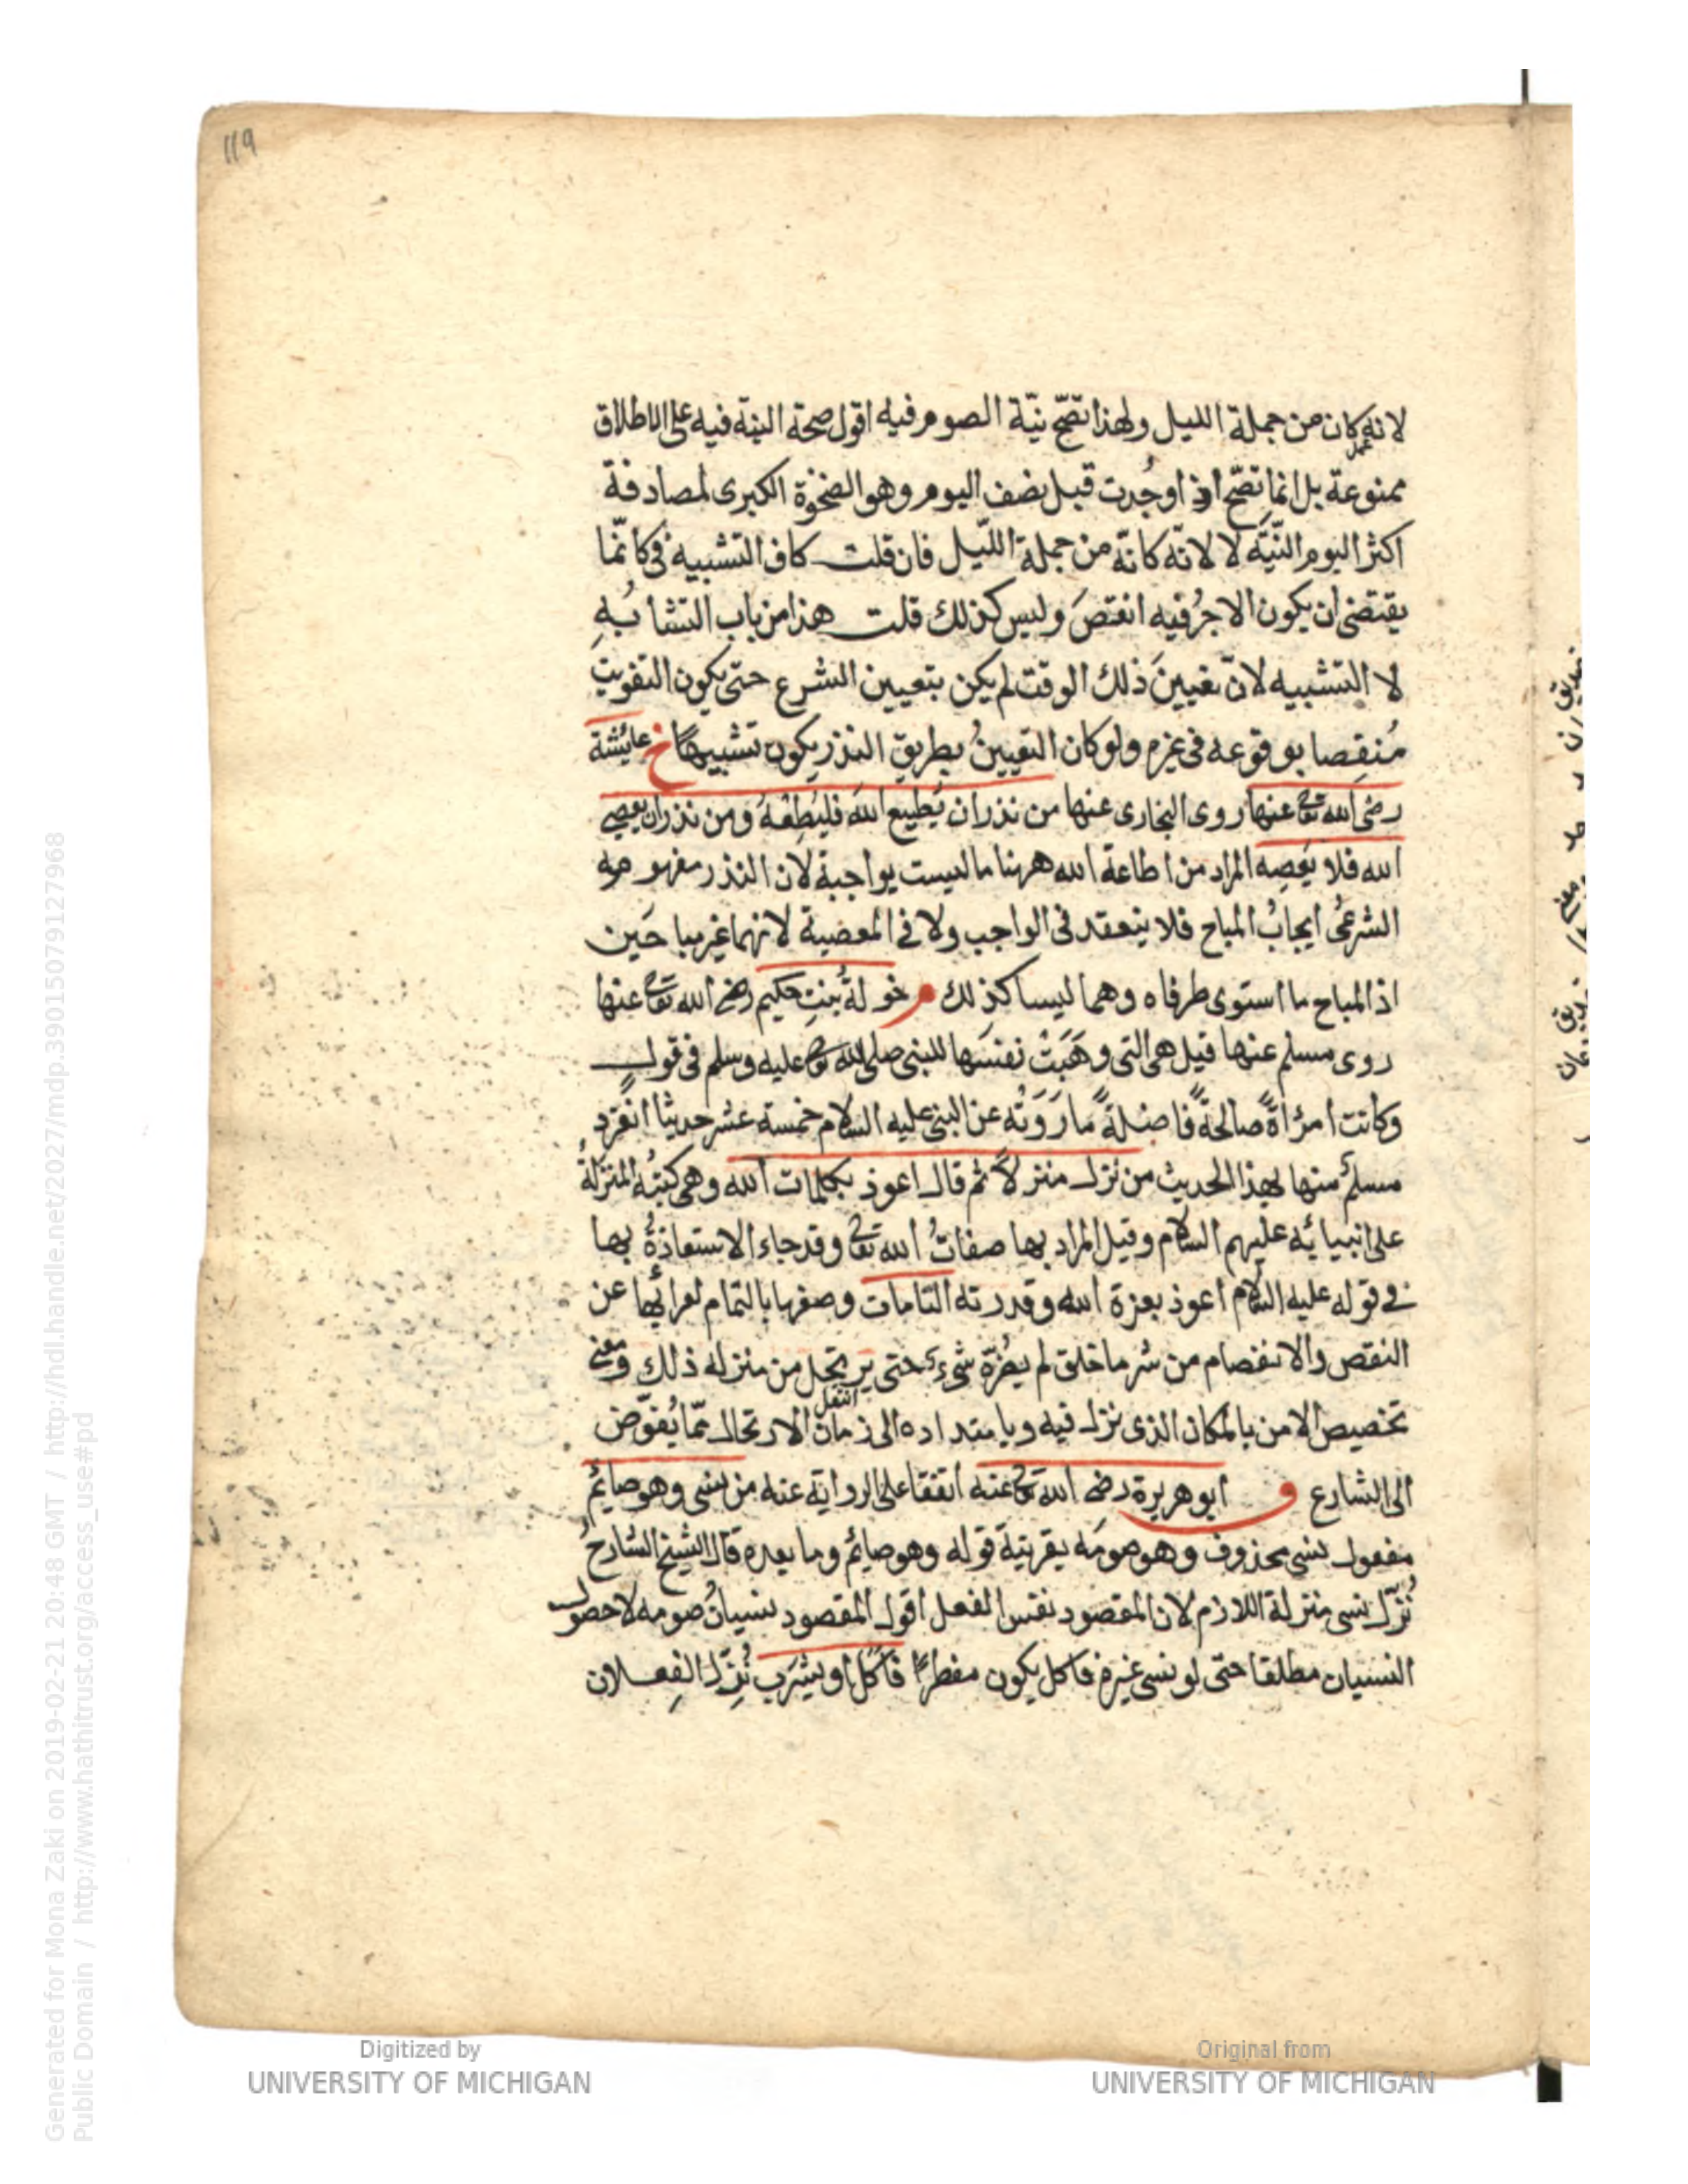 119
لانه كان من جملة الليل ولهذا تصحّ نيّة الصوم فيه اقول صحة النية فيه على الاطلاق
ممنوعة بل انما تصّح اذ اوجُدت قبل نصف اليوم وهو الضحوة الكبرى لمصادفة
اكثر اليوم النّيّة لا لانّه كانّه من جملة اللّيل فان قلت كاف التشبيه فى كانّما
يقتضى ان يكون الاجرُ فيه انقصَ وليس كذلك قلت هذا من باب التشابُهِ
لا التشبيه لانّ تعيينَ ذلك الوقت لم يكن بتعيين الشرع حتى يكون التفويت
مُنقِصا بوقوعه فى غيره ولو كان التعيينُ بطريق النذر يكون تشبيها خ عايشة
رضى الله تعالى عنها روى البخارى عنها من نذر ان يُطيع الله فليُطِعْهُ ومن نذر ان يعصى
الله فلا يَعصِه المراد من اطاعة الله ههنا ما ليست بواجبة لان النذر مفهومه
الشرعىُّ ايجابُ المباح فلا ينعقد فى الواجب ولا فى المعصية لانهما غير مباحَين
اذ المباح ما استوى طرفاه وهما ليسا كذلك م خولةُ بنتِ حكيم رضى الله تعالى عنها
روى مسلم عنها قيل هى التى وهَبَتْ نفسَها للنبى صلى الله تعالى عليه وسلم فى قولٍ
وكانت امرأةً صالحةً فاضلةً ما رَوَتْه عن النبى عليه السلام خمسته عشر حديثا انفرد
مسلمٌ منها بهذا الحديث من نزل منزلاً ثم قال اعوذ بكلمات الله وهى كتبُه المنزلةُ
على انبيائه عليهم السلام وقيل المراد بها صفاتُ الله تعالى وقد جاء الاستعاذةُ بها
فى قوله عليه السلام اعوذ بعزة الله وقدرته التامات وصفها بالتمام لعرائها عن
النقص والانفصام من شر ما خلق لم يضرّه شىء حتى يرتحل من منزله ذلك ومعنى
انتقل
تخصيص الامن بالمكان الذى نزل فيه وبامتداده الى زمان الارتحال ممّا يُفوّض
الى الشارع ق ابو هريرة رضى الله تعالى عنه اتفقا على الرواية عنه من نسى وهو صايمٌ
مفعول نسى محذوف وهو صومَه بقرينة قوله وهو صايم وما بعده قال الشيخ الشارحُ
نُزّل نسى منزلة اللازم لان المقصود نفس الفعل اقول المقصود نسيانُ صومه لا حصول
النسيان مطلقا حتى لو نسى غيره فاكل يكون مفطرًا فاَكَل او يشرَب نُزِّل الفِعلان
Digitized by
UNIVERSITY OF MICHIGAN
Original from
UNIVERSITY OF MICHIGAN
Generated for Mona Zaki on 2019-02-21 20:48 GMT / http://hdl.handle.net/2027/mdp.39015079127968
Public Domain / http://www.hathitrust.org/access_use#pd